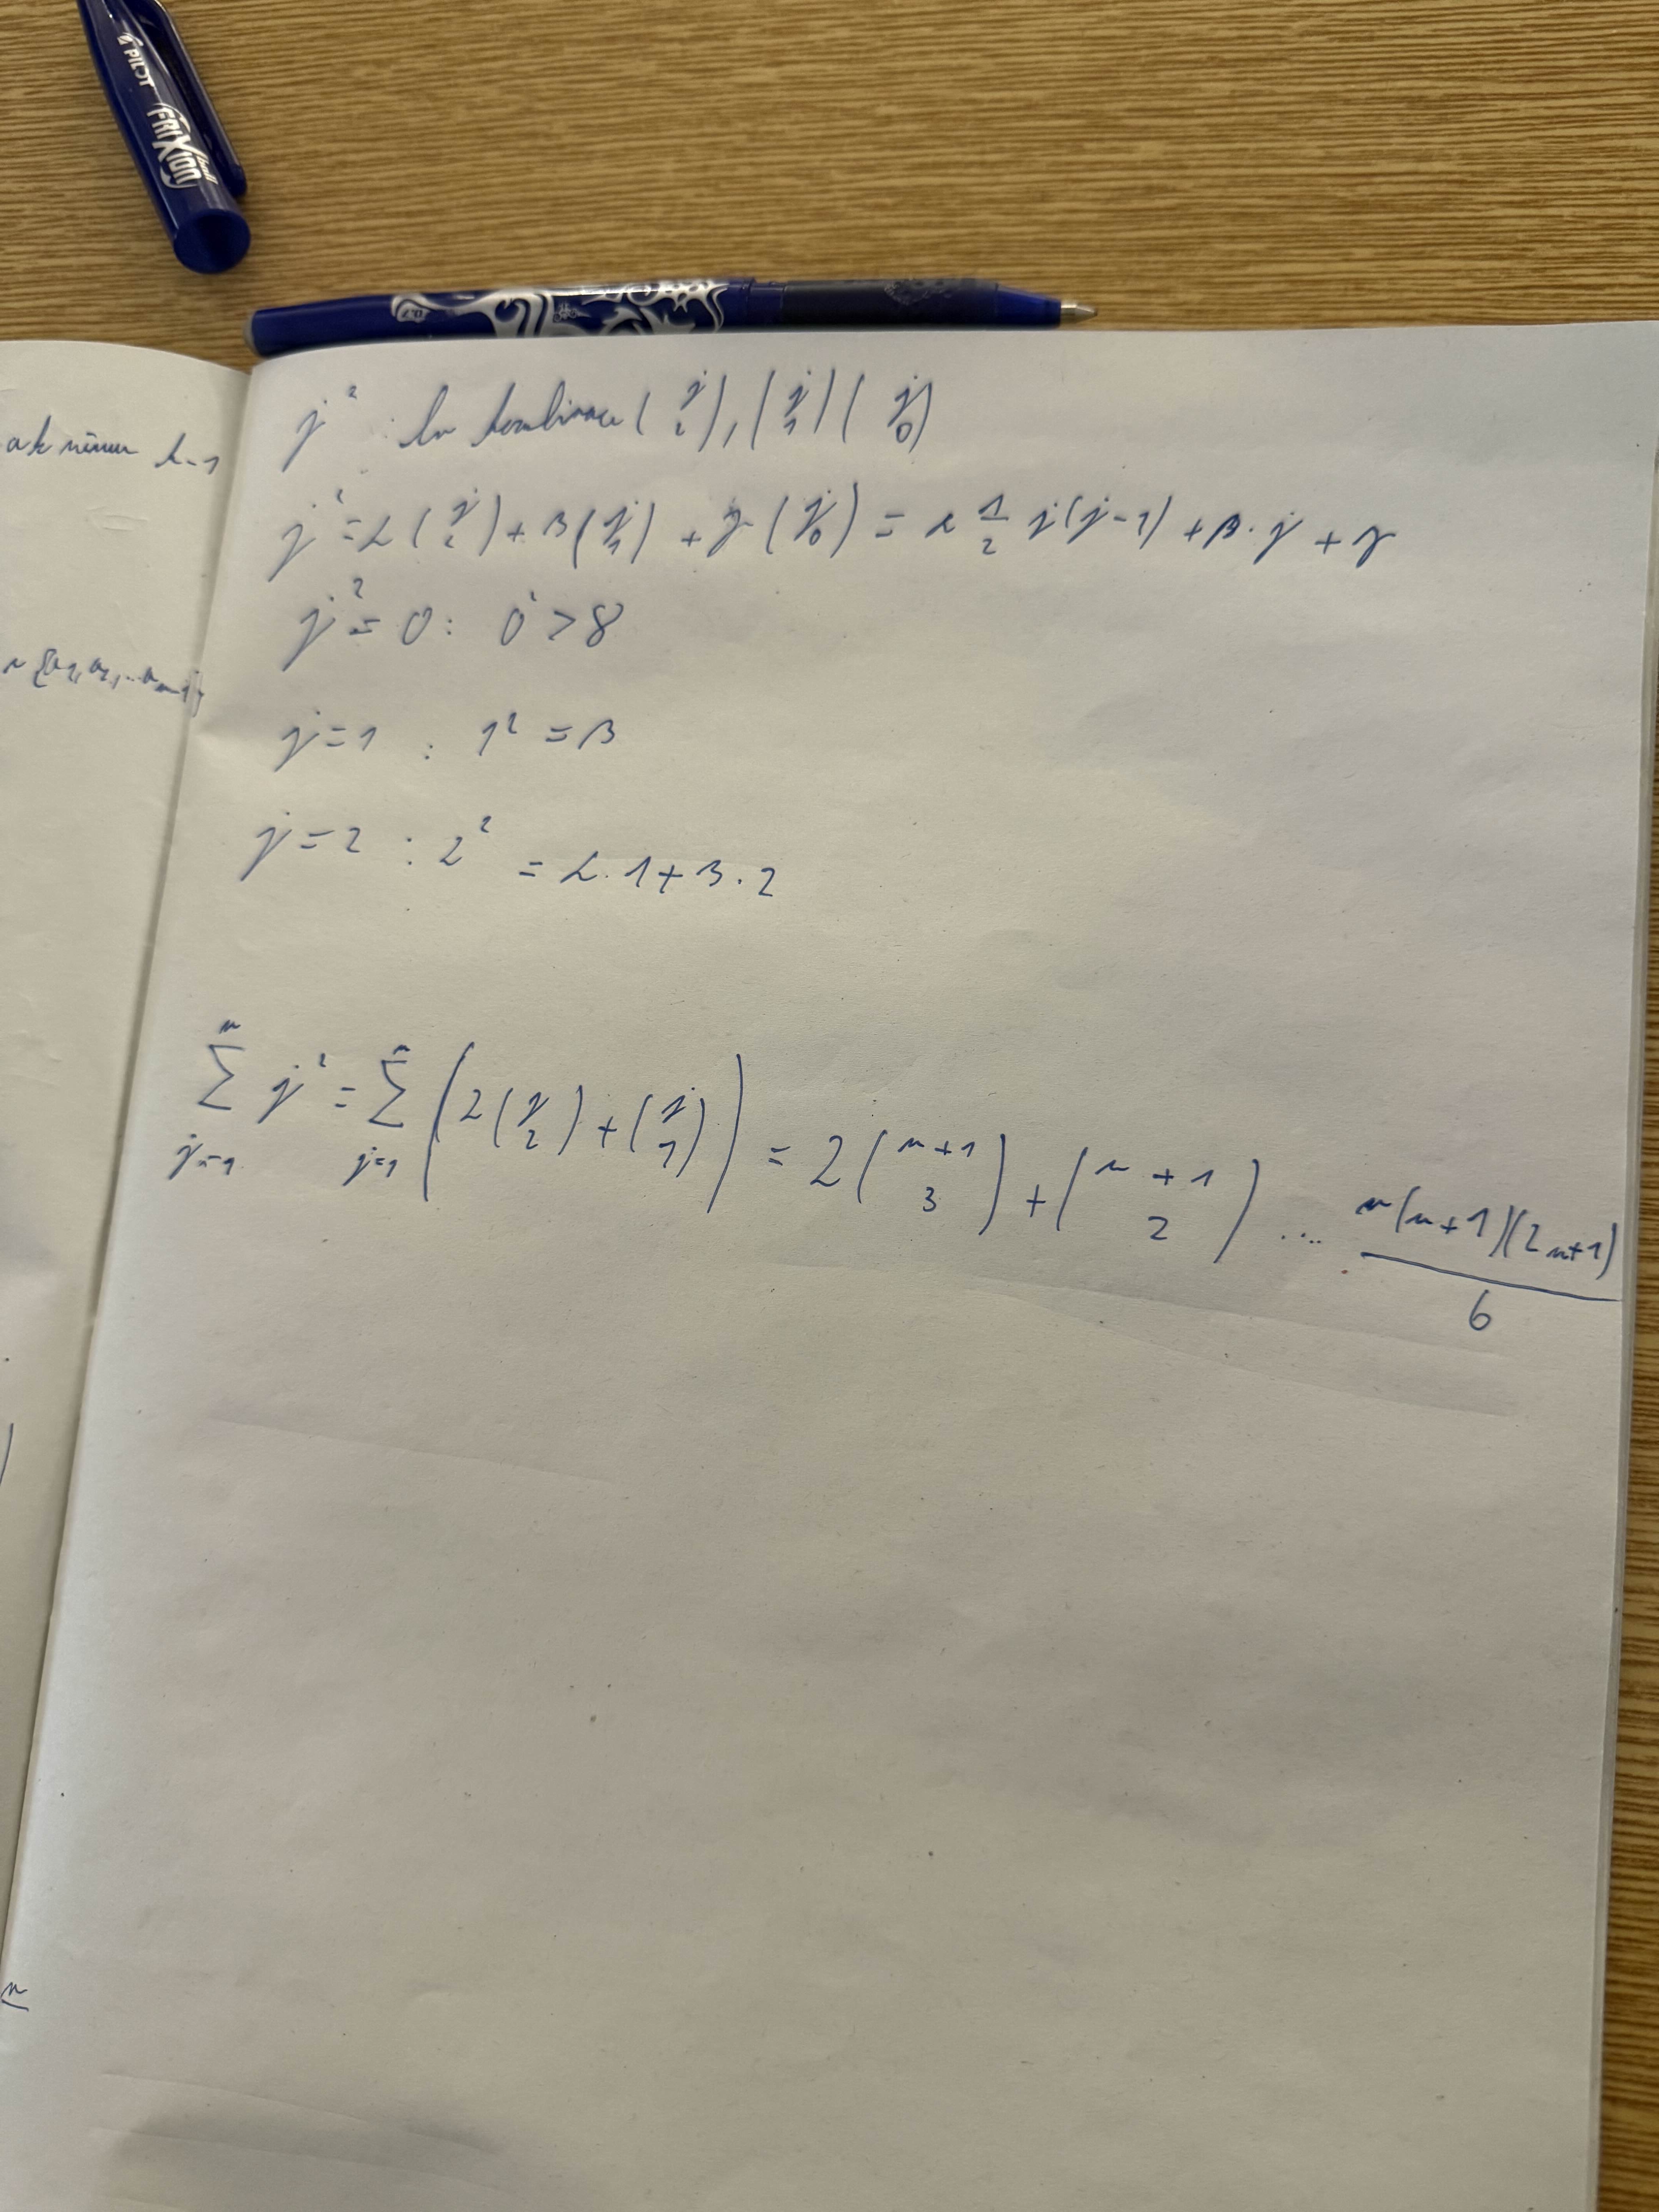 PILOT
FRIXION ball
0.7
ak
k-1
j² : lin kombinace (j 2), (j 1) (j 0)
j² = α (j 2) + β (j 1) + γ (j 0) = α 1/2 j(j-1) + β · j + γ
j² = 0 : 0 > 8
j = 1 : 1² = β
j = 2 : 2² = α · 1 + β · 2
n ∑ j=1 j² = n ∑ j=1 (2 (j 2) + (j 1)) = 2 (n+1 3) + (n+1 2) .... n(n+1)(2n+1) / 6
n